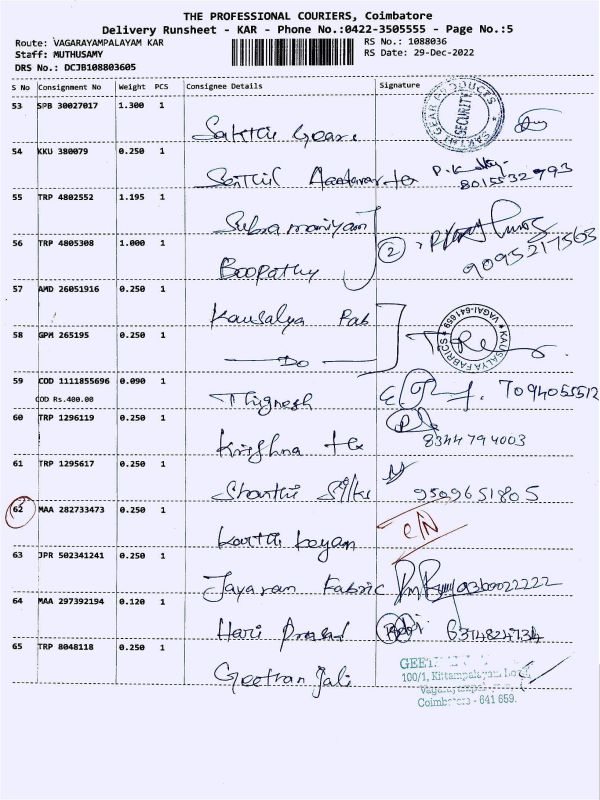 THE PROFESSIONAL COURIERS, Coimbatore
Delivery Runsheet - KAR - Phone No.:0422-3505555 - Page No.:5
Route: VAGARAYAMPALAYAM KAR
RS No.: 1088036
Staff: MUTHUSAMY
RS Date: 29-Dec-2022
DRS No.: DCJB108803605
S No Consignment No Weight PCS Consignee Details Signature
53 SPB 30027017 1.300 1
Sakthi Gears
SAKTHI GEAR PRODUCTS
SECURITY
54 KKU 380079 0.250 1
Senthil
8015532793
55 TRP 4802552 1.195 1
Subramaniyam
56 TRP 4805308 1.000 1
Boopathy
2
9095217563
57 AMD 26051916 0.250 1
Kausalya Fab
58 GPM 265195 0.250 1
Do
KAUSALYA FABRICS
VAGAI-641659
59 COD 1111855696 0.090 1
COD Rs.400.00
Thignesh
7094055512
60 TRP 1296119 0.250 1
Krishna tex
8344794003
61 TRP 1295617 0.250 1
Sharthi Silks
9509651805
62 MAA 282733473 0.250 1
63 JPR 502341241 0.250 1
Jayaram Fabric
9360022222
64 MAA 297392194 0.120 1
Hari Prasad
6374824734
65 TRP 8048118 0.250 1
Geethanjali
100/1, Kittampalayam
Coimbatore - 641 659.